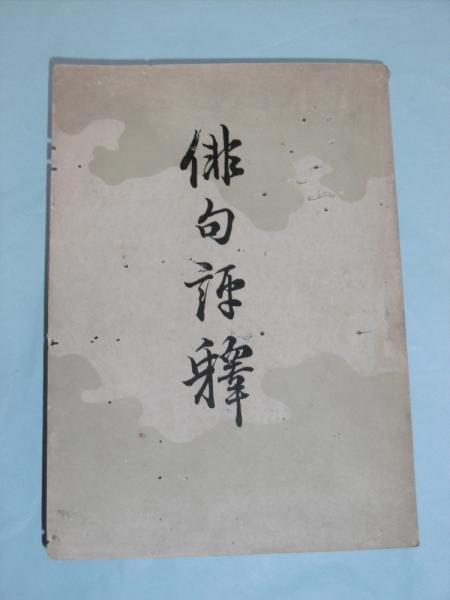 俳句評釋